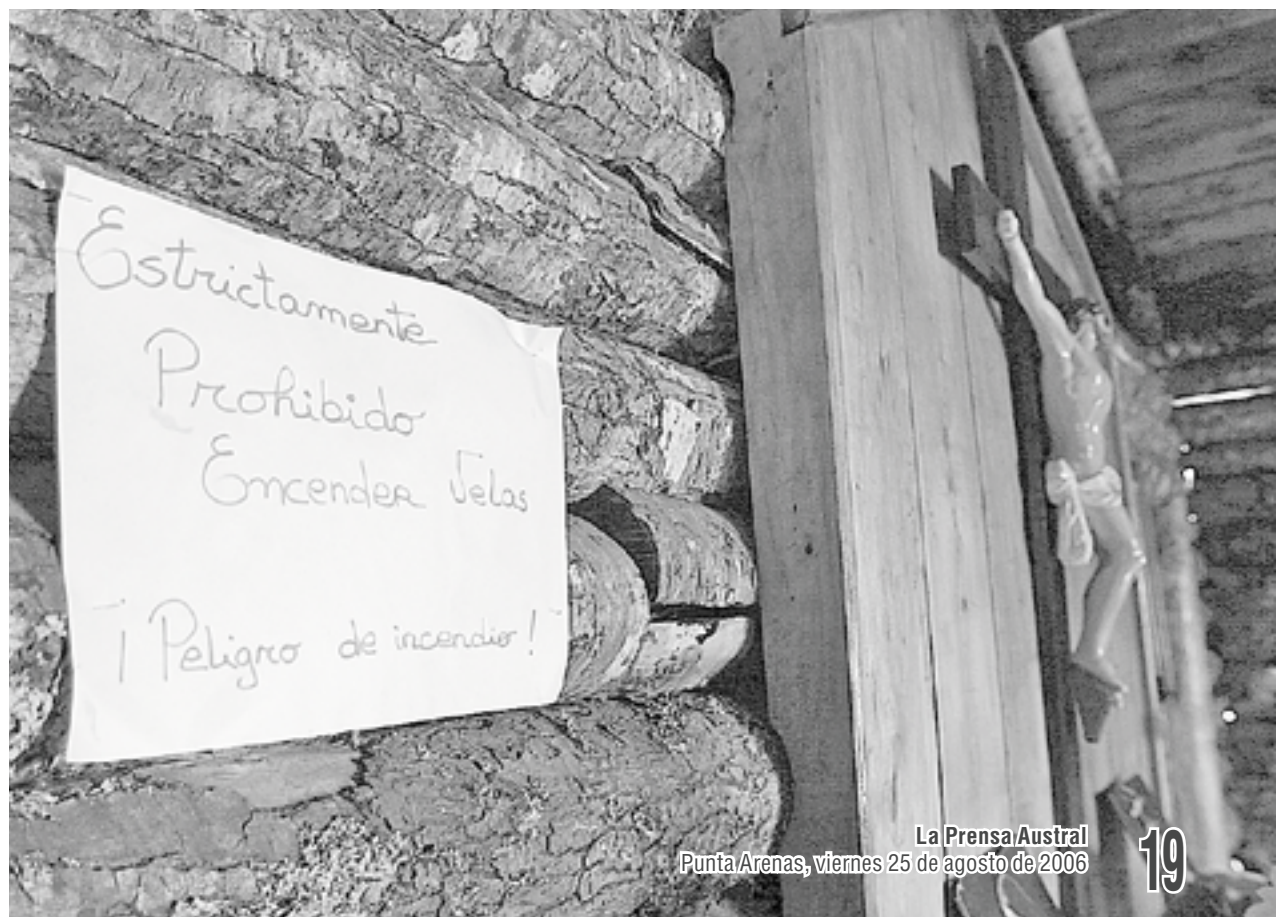 Estrictamente
Prohibido
Encender Velas
¡Peligro de incendio!
La Prensa Austral
Punta Arenas, viernes 25 de agosto de 2006
19